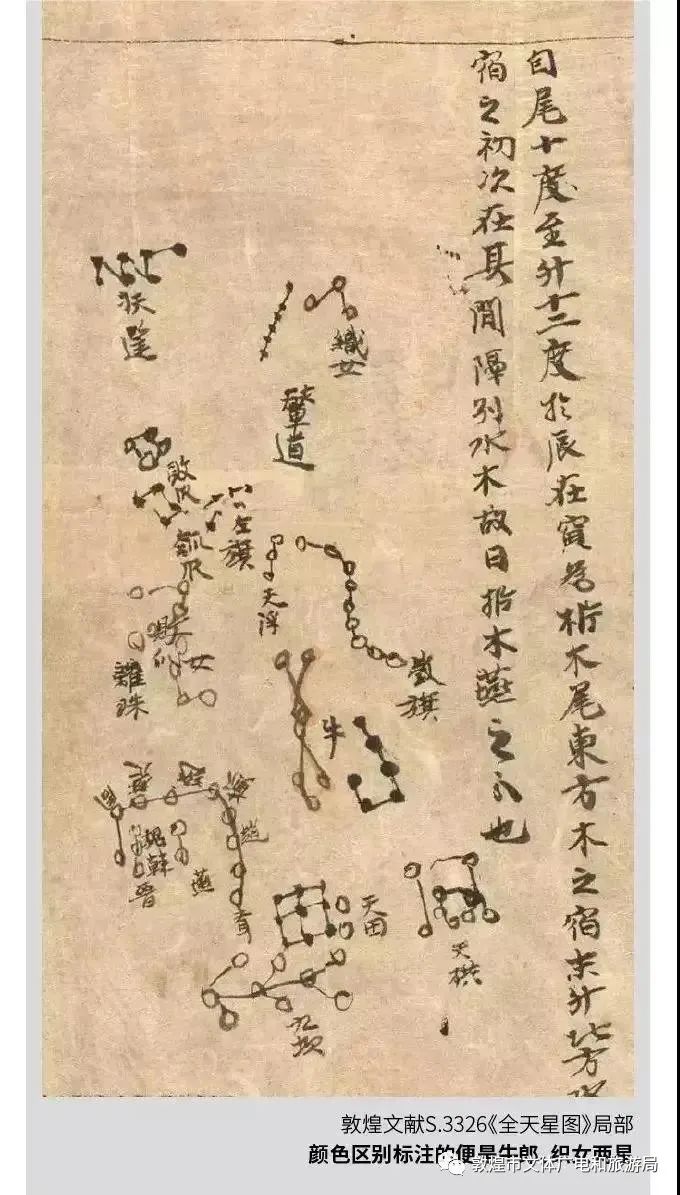 自尾十度至斗十二度於辰在寅為析木尾東方木之宿末斗北方
宿之初次在其間隔別水木故曰析木燕之分也
扶筐
織女
輦道
敗瓜
瓠瓜
左旗
天浮
女
離珠
旗
牛
趙
魏韓晉
燕
天田
九坎
敦煌文献S.3326《全天星图》局部
颜色区别标注的便是牛郎、织女两星
敦煌市文体广电和旅游局